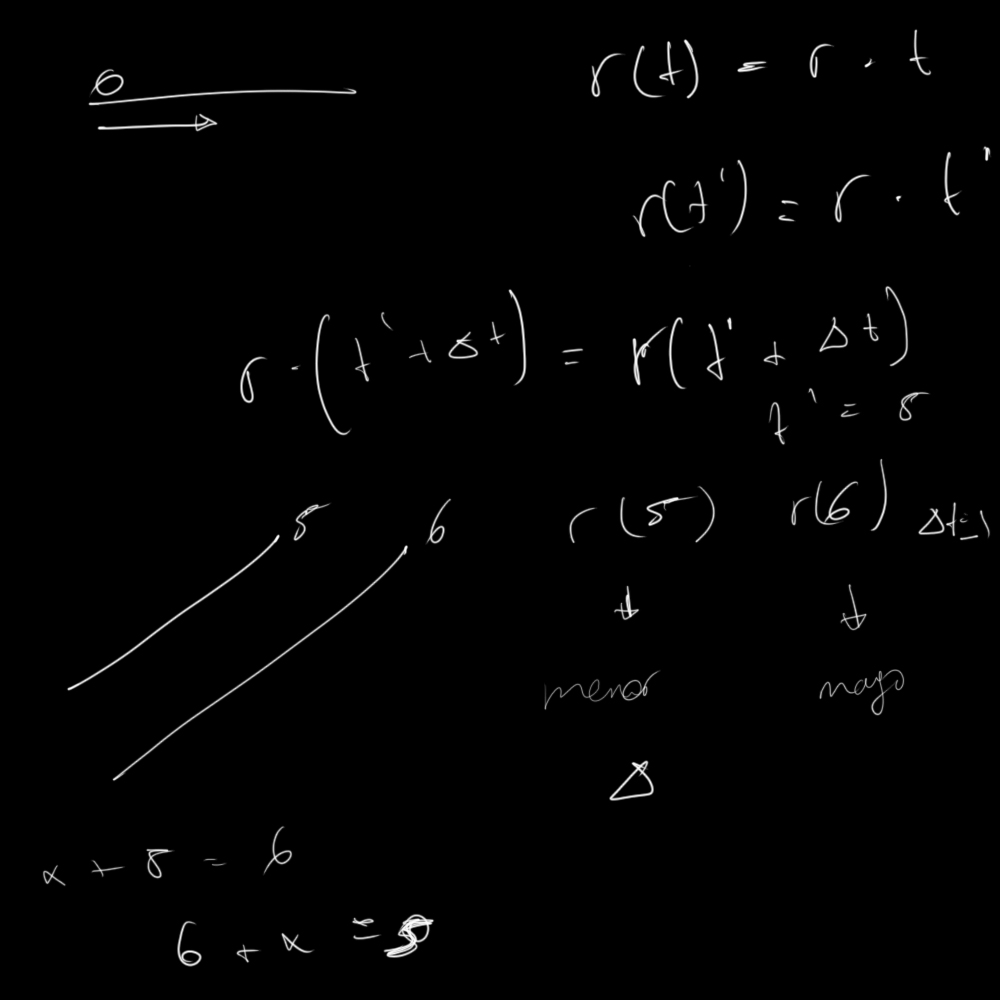 r(t) = r · t
r(t') = r · t'
r · (t' + Δt) = r(t' + Δt)
t' = 5
5 6 r(5) r(6) Δt=1
↓ ↓
menor mayo
Δ
x + 5 = 6
6 + x = 5